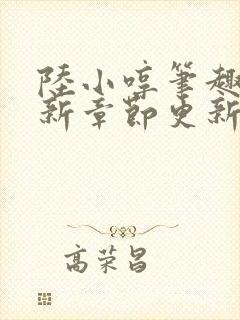 陸小啍筆趣
新章節更新
高荣昌